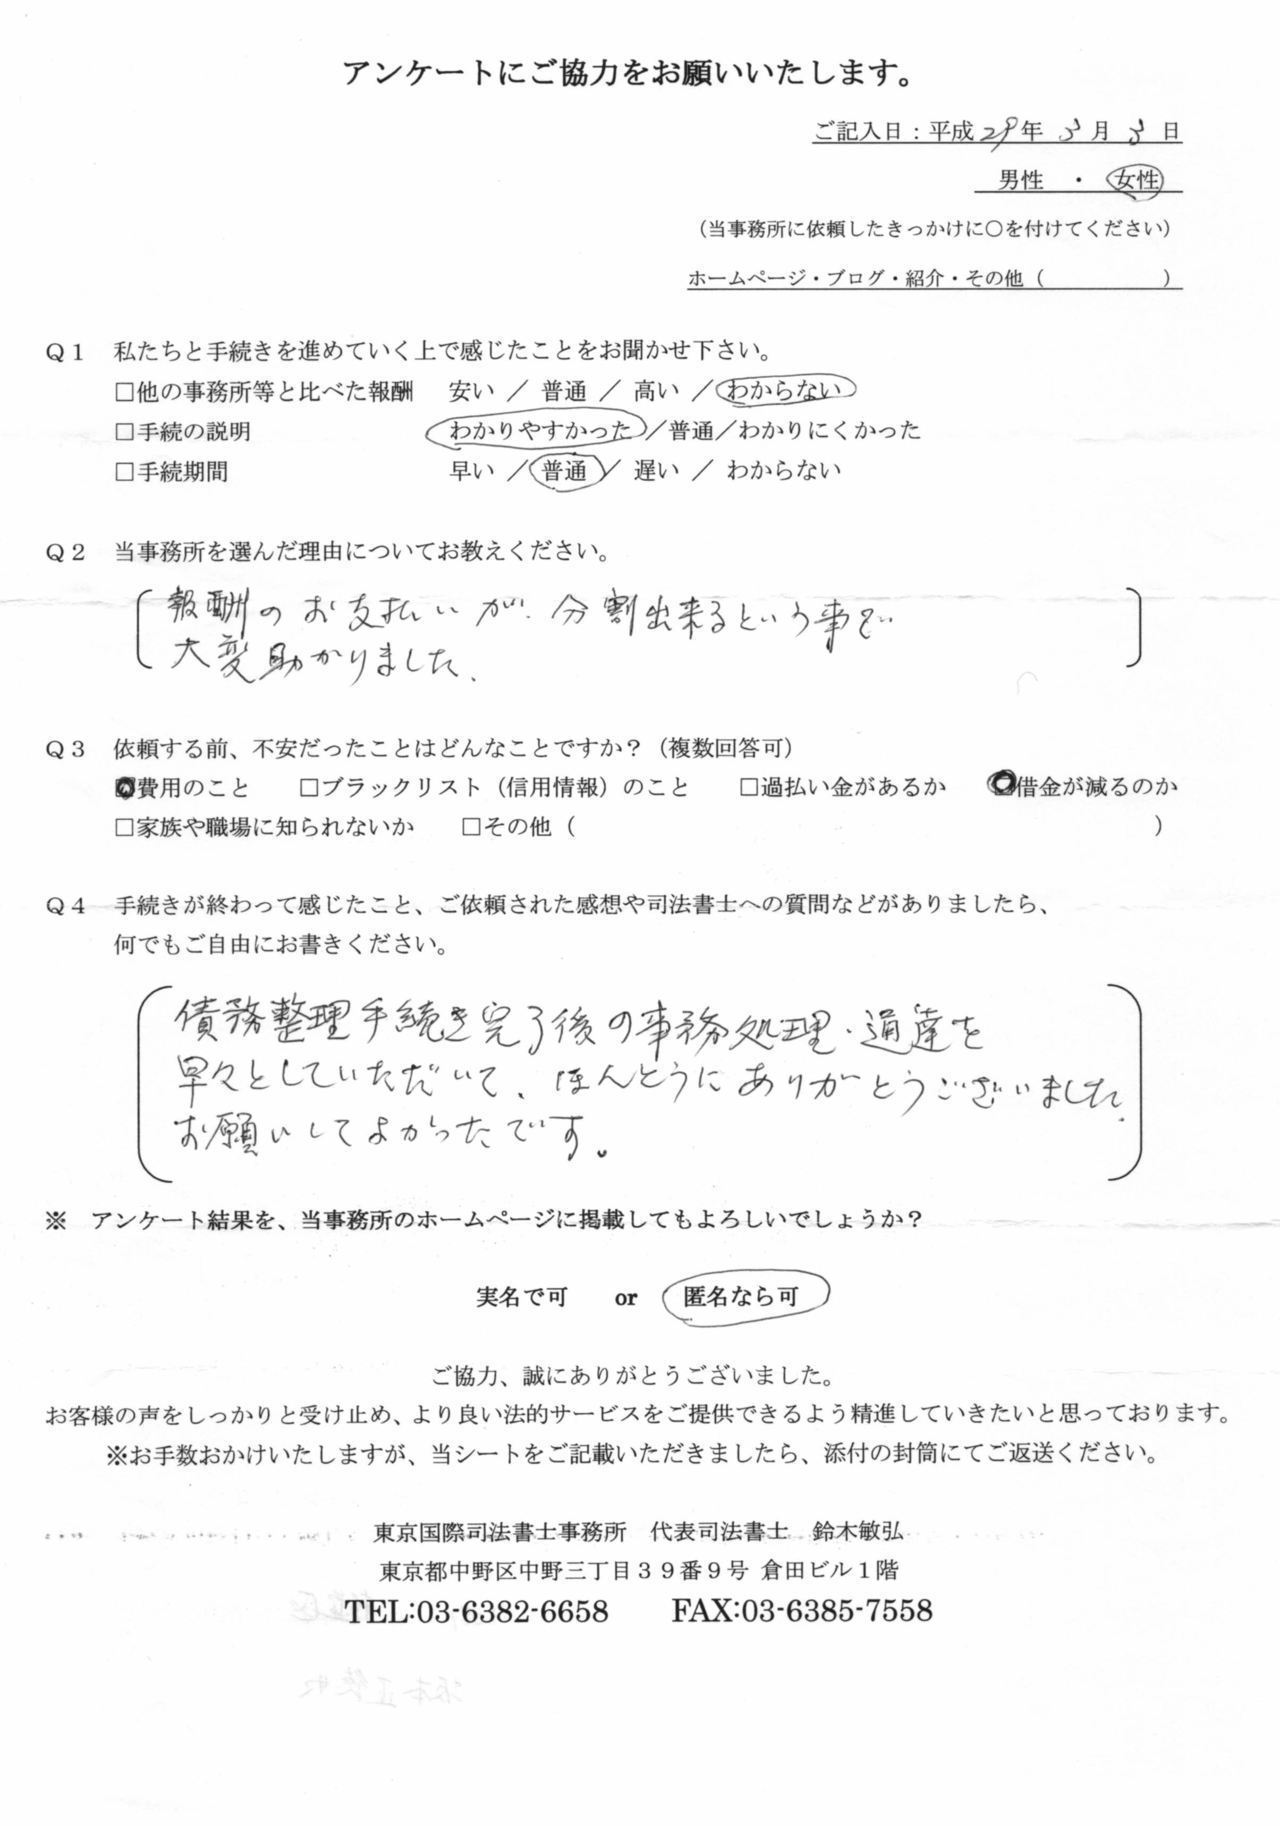 アンケートにご協力をお願いいたします。
ご記入日：平成29年 3月 3日
男性 ・ 女性
（当事務所に依頼したきっかけに〇を付けてください）
ホームページ・ブログ・紹介・その他（　　　　　）
Q1 私たちと手続きを進めていく上で感じたことをお聞かせ下さい。
□他の事務所等と比べた報酬 安い ／ 普通 ／ 高い ／わからない
□手続の説明 わかりやすかった／普通／わかりにくかった
□手続期間 早い ／ 普通 ／ 遅い ／ わからない
Q2 当事務所を選んだ理由についてお教えください。
報酬のお支払いが、分割出来るという事で
大変助かりました。
Q3 依頼する前、不安だったことはどんなことですか？（複数回答可）
□費用のこと □ブラックリスト（信用情報）のこと □過払い金があるか □借金が減るのか
□家族や職場に知られないか □その他（　　　　　）
Q4 手続きが終わって感じたこと、ご依頼された感想や司法書士への質問などがありましたら、
何でもご自由にお書きください。
債務整理手続き完了後の事務処理・通達を
早々としていただいて、ほんとうにありがとうございました。
お願いしてよかったです。
※ アンケート結果を、当事務所のホームページに掲載してもよろしいでしょうか？
実名で可 or 匿名なら可
ご協力、誠にありがとうございました。
お客様の声をしっかりと受け止め、より良い法的サービスをご提供できるよう精進していきたいと思っております。
※お手数おかけいたしますが、当シートをご記載いただきましたら、添付の封筒にてご返送ください。
東京国際司法書士事務所 代表司法書士 鈴木敏弘
東京都中野区中野三丁目３９番９号 倉田ビル１階
TEL:03-6382-6658 FAX:03-6385-7558